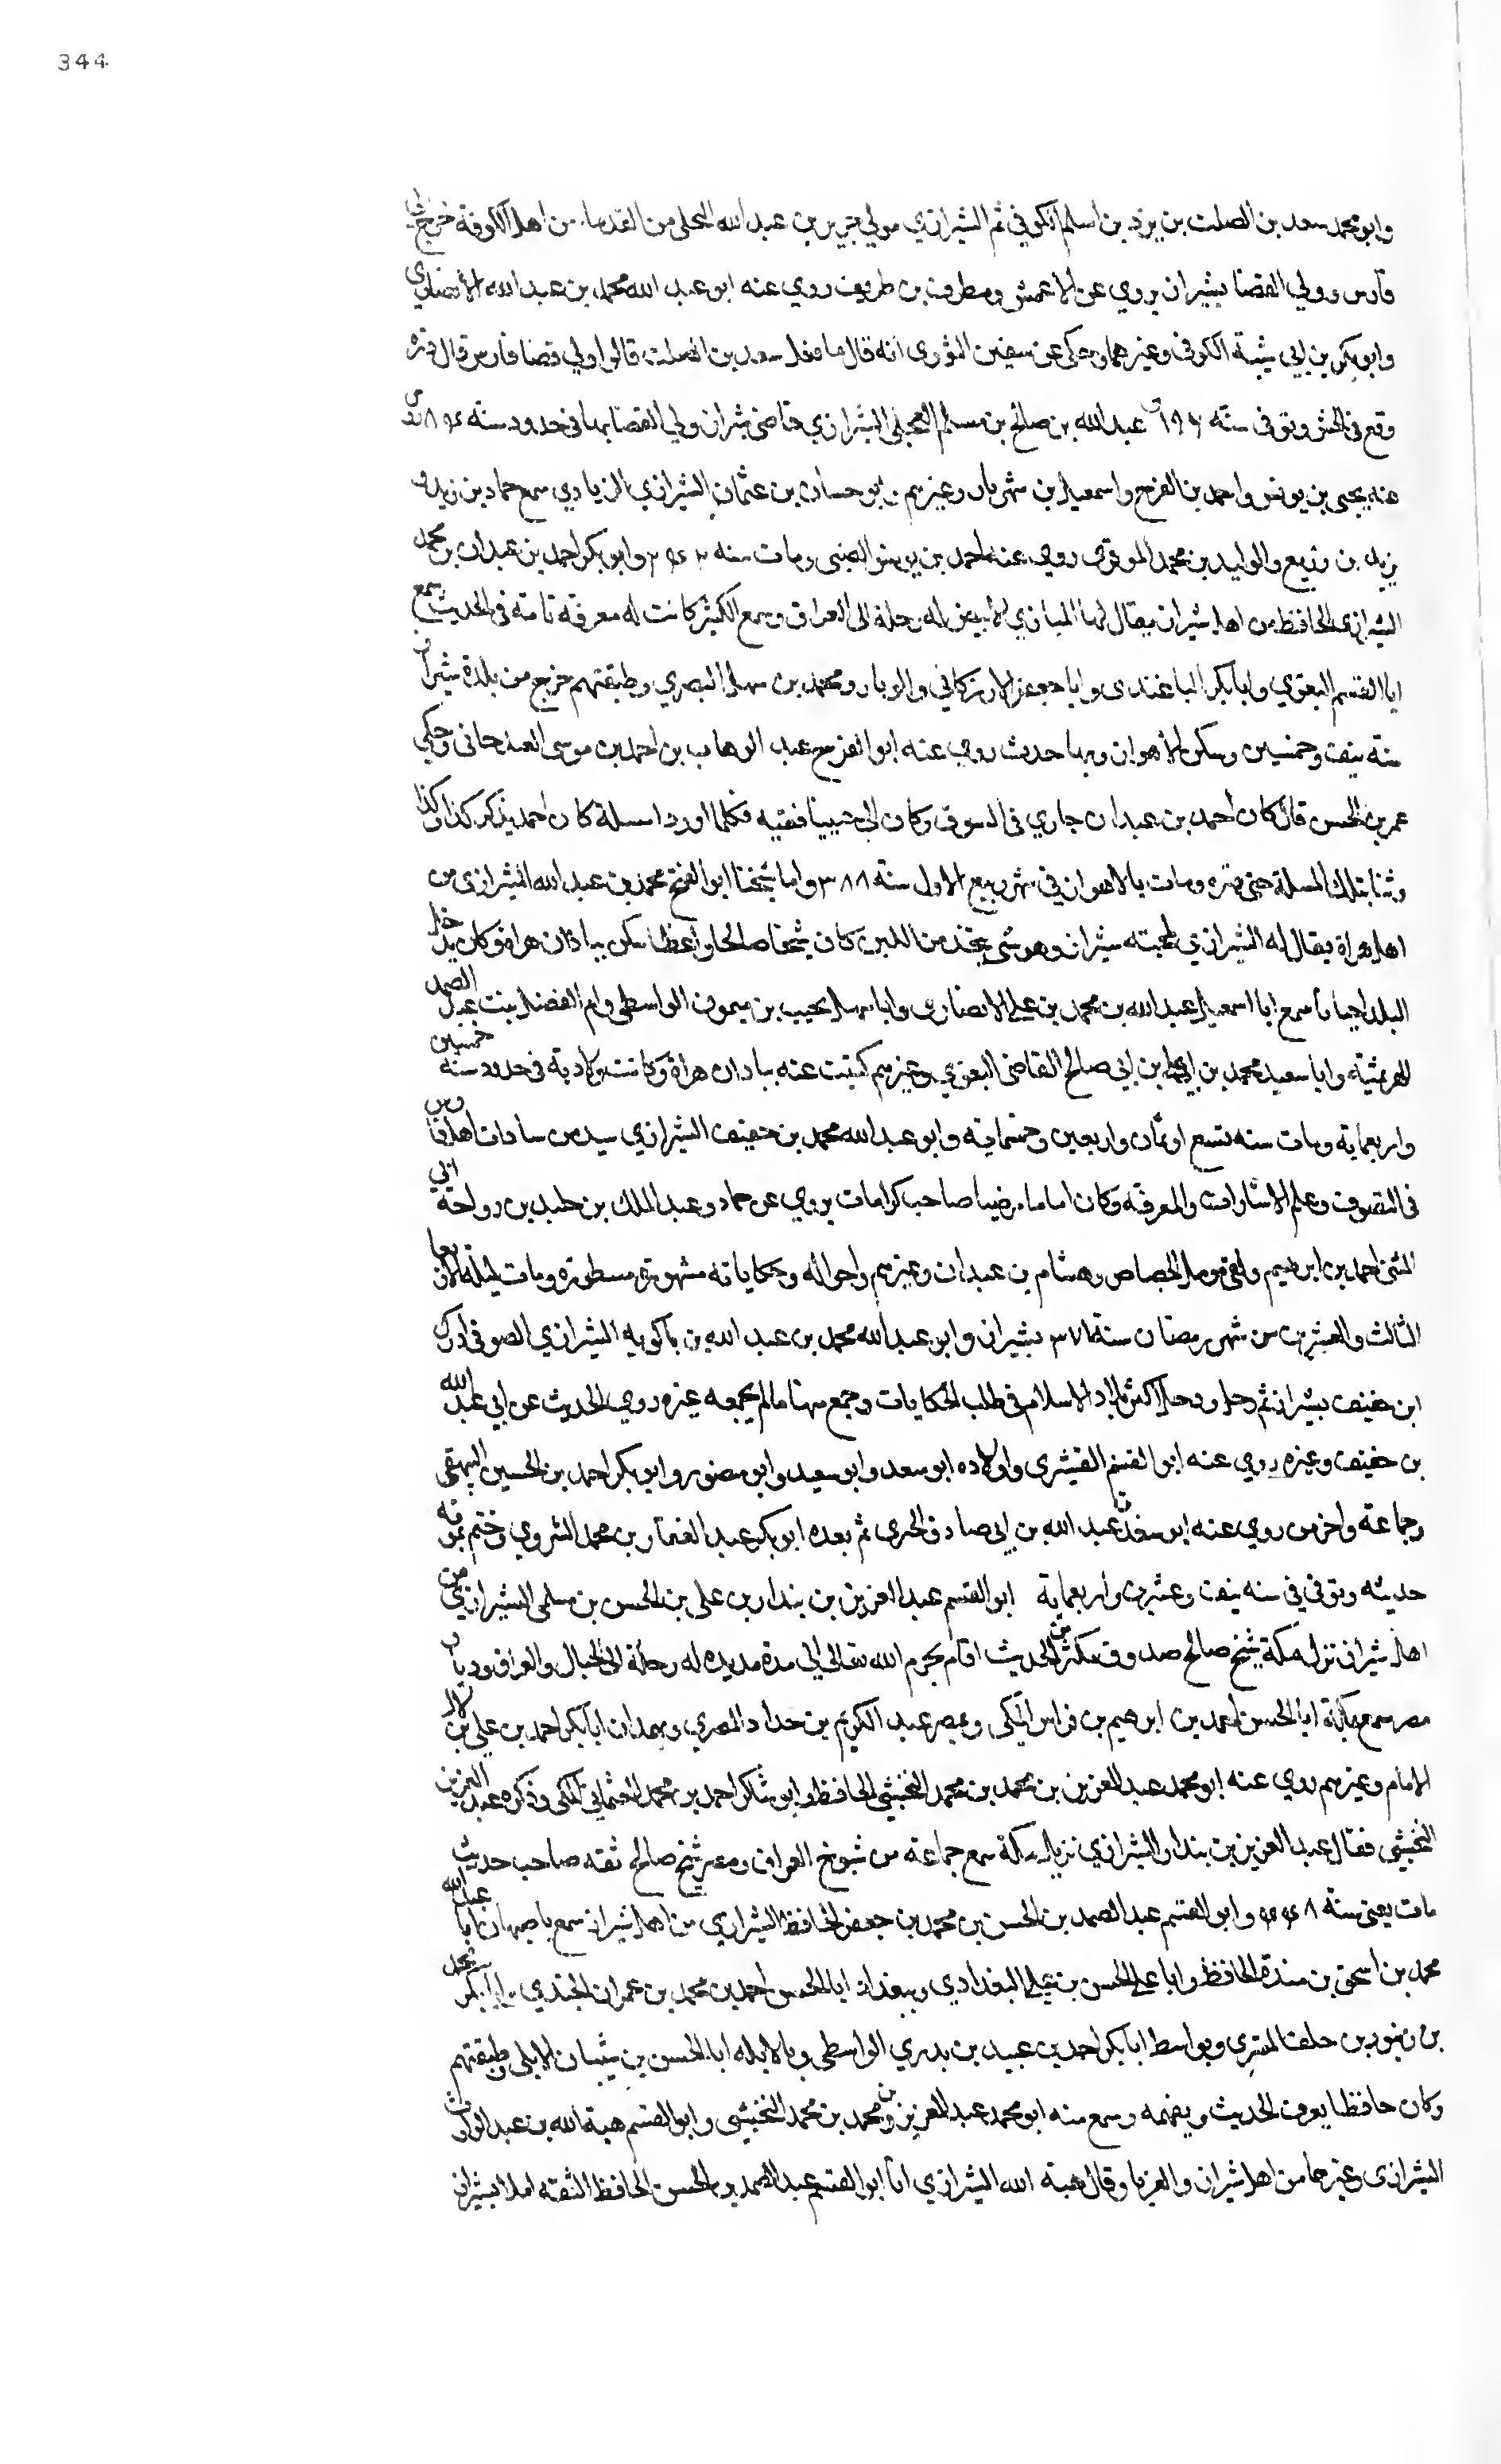 344
وابو محمد سعد بن الصلت بن برد بن اسلم الكوفي ثم الشيرازي مولي جرير بن عبد الله البجلي من القدما من اهل الكوفة خرج الي
فارس وولي القضا بشيراز يروي عن الاعمش ومطرف بن طريف روي عنه ابو عبد الله محمد بن عبد الله الانصاري
وابو بكر بن ابي شيبة الكوفي وغيرهما وحكي عن سفين الثوري انه قال ما فعل سعد بن الصلت قالوا ولي قضا فارس قال دره
وقع في الحش وتوفي في سنة ١٩٦ عبد الله بن صالح بن مسلم العجلي الشيرازي قاضي شيراز ولي القضا بها في حدود سنة
عنه يحيي بن يونس واحمد بن الفرج واسمعيل بن شهريار وغيرهم ابو حسان بن عثمان الشيرازي الزيادي سمع حماد بن زيد و
يزيد بن زريع والوليد بن محمد الموقري روي عنه احمد بن يونس الضبي ومات سنه وابو بكر احمد بن عبدان بن محمد
الشيرازي الحافظ من اهل شيراز يقال له الباز الابيض له رحلة الي العراق وسمع الكثير كانت له معرفة تامة في الحديث سمع
ابا القسم البغوي وابا بكر الباغندي وابا جعفر الارزكاني ومحمد بن سهل البصري وطبقتهم خرج من بلدة شيراز
سنة نيف وخمسين وسكن الاهواز وبها حدث روي عنه ابو الفرج عبد الوهاب بن احمد بن موسي الغندجاني وحكي
عمر بن الحسن قال كان احمد بن عبدان جاري في السوق وكان الي جنبينا فقيه فكلما اورد مسلة كان احمد يذكر كذا وكذا
بتلك المسلة حتي ومات بالاهواز في شهر ربيع الاول سنة ٣٨٨ واما شيخنا ابو الفتح محمد بن عبد الله الشيرازي من
اهل هراة يقال له الشيرازي وهو شي يتخذ من اللبن كان شيخا صالحا واعظا سكن هراة وكان يدخل
البلد احيانا سمع ابا اسمعيل عبد الله بن محمد بن علي الانصاري وابا سهل نجيب بن ميمون الواسطي وام الفضل بنت عبد الصمد
الهرثمية وابا سعيد محمد بن ابن ابي صالح القاضي البغوي وغيرهم كتبت عنه هراة وكانت ولادته في حدود سنة خمسين
واربعماية ومات سنه تسع او ثمان واربعين وخمسماية وابو عبد الله محمد بن خفيف الشيرازي سيد من سادات اهل فارس
في التصوف وعلم الاشارات والمعرفه وكان اماما مرضيا صاحب كرامات يروي عن حماد وعبد الملك بن خليد بن رواحة
احمد بن ابرهيم ولقي الجصاص وهشام بن عبدان وغيرهم واحواله وحكاياته مشهورة مسطورة ومات ليلة
الثالث والعشرين من شهر رمضان سنة ٣٧١ بشيراز وابو عبد الله محمد بن عبد الله بن باكويه الشيرازي الصوفي ادرك
ابن خفيف بشيراز ثم رحل ودخل اكثر بلاد الاسلام في طلب الحكايات وجمع منها مالم يجمعه غيره روي الحديث عن ابي عبد الله
بن خفيف وغيره روي عنه ابو القسم القشيري واولاده ابو سعد وابو سعيد وابو منصور وابو بكر احمد بن الحسين البيهقي
وجماعة واخر من روي عنه ابو سعد عبد الله بن ابي صادق الحيري ثم بعده ابو بكر عبد الغفار بن محمد الشروي وختم بموته
حديثه وتوفي في سنه نيف وعشرين واربعماية ابو القسم عبد العزيز بن بندار بن علي بن الحسن بن سلمي الشيرازي من
اهل شيراز نزل مكة شيخ صالح صدوق مكثر من الحديث اقام بحرم الله تعالي الي مدة مديده له رحلة الي الجبال والعراق وديار
مصر سمع بمكة ابا الحسن احمد بن ابرهيم بن فراس المكي وبمصر عبد الكريم بن حداد المصري وبهمدان ابا بكر احمد بن علي بن لال
الامام وغيرهم روي عنه ابو محمد عبد العزيز بن محمد بن محمد النخشبي الحافظ وابو شاكر احمد بن محمد العثماني المكي وذكره عبد العزيز
النخشبي فقال عبد العزيز بن بندار الشيرازي نزيل مكة سمع جماعة من شيوخ العراق ومصر شيخ صالح ثقه صاحب حديث
مات يعني سنة وابو القسم عبد الصمد بن الحسن بن محمد بن جعفر الحافظ الشيرازي من اهل شيراز سمع باصبهان ابا عبد الله
محمد بن اسحق بن مندة الحافظ وابا علي الحسن بن علي البغدادي وببغداد ابا الحسن احمد بن محمد بن عمران الجندي وابا بكر محمد
بن بن خلف المقري وبواسط ابا بكر احمد بن عبيد بن بيري الواسطي وبالابله ابا الحسن بن شيبان الابلي وطبقتهم
وكان حافظا يعرف الحديث ويفهمه وسمع منه ابو محمد عبد العزيز بن محمد بن محمد النخشبي وابو القسم هبة الله بن عبد الوارث
الشيرازي وغيرهما من اهل شيراز والغربا وقال هبة الله الشيرازي انا ابو القسم عبد الصمد بن الحسن الحافظ الثقه املا بشيراز